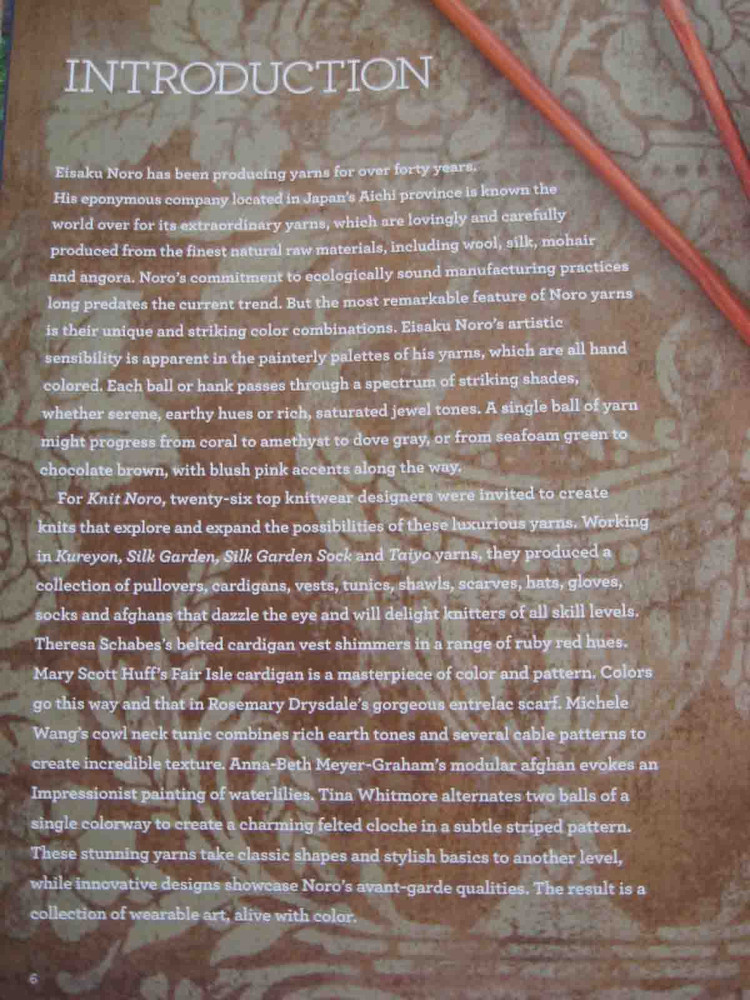 INTRODUCTION
Eisaku Noro has been producing yarns for over forty years.
His eponymous company located in Japan's Aichi province is known the
world over for its extraordinary yarns, which are lovingly and carefully
produced from the finest natural raw materials, including wool, silk, mohair
and angora. Noro's commitment to ecologically sound manufacturing practices
long predates the current trend. But the most remarkable feature of Noro yarns
is their unique and striking color combinations. Eisaku Noro's artistic
sensibility is apparent in the painterly palettes of his yarns, which are all hand
colored. Each ball or hank passes through a spectrum of striking shades,
whether serene, earthy hues or rich, saturated jewel tones. A single ball of yarn
might progress from coral to amethyst to dove gray, or from seafoam green to
chocolate brown, with blush pink accents along the way.
For Knit Noro, twenty-six top knitwear designers were invited to create
knits that explore and expand the possibilities of these luxurious yarns. Working
in Kureyon, Silk Garden, Silk Garden Sock and Taiyo yarns, they produced a
collection of pullovers, cardigans, vests, tunics, shawls, scarves, hats, gloves,
socks and afghans that dazzle the eye and will delight knitters of all skill levels.
Theresa Schabes's belted cardigan vest shimmers in a range of ruby red hues.
Mary Scott Huff's Fair Isle cardigan is a masterpiece of color and pattern. Colors
go this way and that in Rosemary Drysdale's gorgeous entrelac scarf. Michele
Wang's cowl neck tunic combines rich earth tones and several cable patterns to
create incredible texture. Anna-Beth Meyer-Graham's modular afghan evokes an
Impressionist painting of waterlilies. Tina Whitmore alternates two balls of a
single colorway to create a charming felted cloche in a subtle striped pattern.
These stunning yarns take classic shapes and stylish basics to another level,
while innovative designs showcase Noro's avant-garde qualities. The result is a
collection of wearable art, alive with color.
6